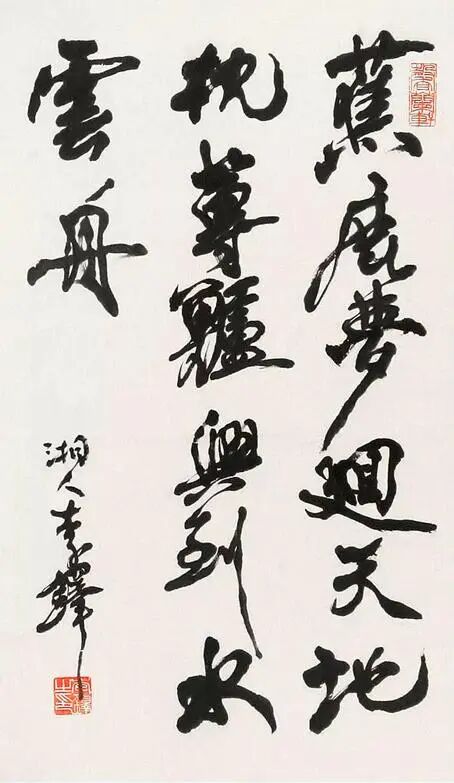 蕉鹿夢迴天地
枕蓴鱸興到水
雲舟
湘人李鐸
李鐸之印